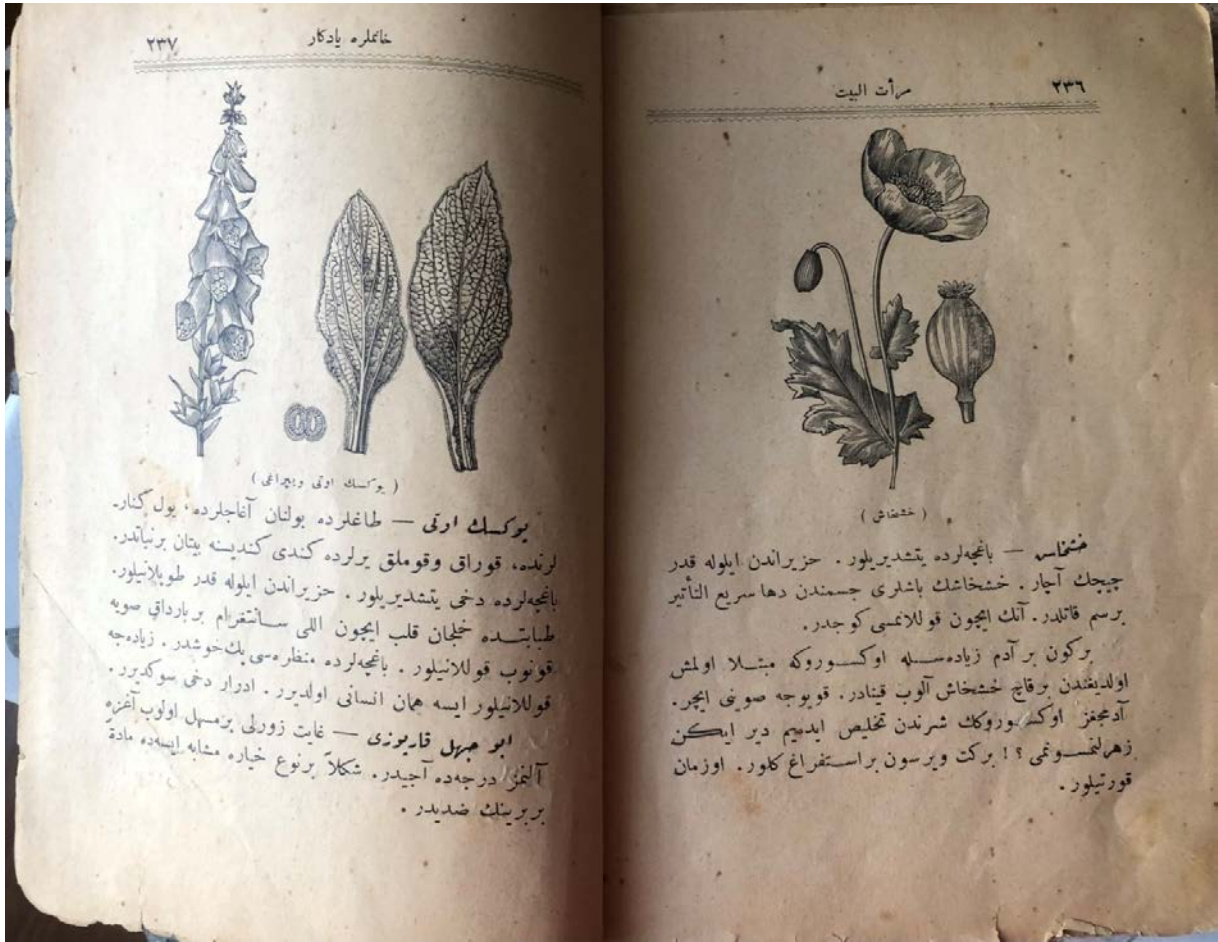 ٢٣٦
مرأت البيت
( خشخاش )
خشخاش — باغچه‌لرده يتشديريلور . حزيراندن ايلوله قدر
چيچك آچار . خشخاشك باشلرى جسمندن دها سريع التأثير
بر سم قاتلدر . آنك ايچون قوللانمسى كوجدر .
بركون بر آدم زياده‌سله اوكسوروكه مبتلا اولمش
اولديغندن برقاچ خشخاش آلوب قينادر . قويوجه صوينى ايچر .
آدمجغز اوكسوروكك شرندن تخليص ايده‌يم دير ايكن
زهرلنمسونمى ؟ ! بركت ويرسون بر استفراغ كلور . اوزمان
قورتيلور .
خانملره يادكار
٢٣٧
( يوكسك اوتى وپيراغى )
يوكسك اوتى — طاغلرده بولنان آغاجلرده ، يول كنار-
لرنده ، قوراق وقوملق يرلرده كندى كنديسنه بيتان برنباتدر .
باغچه‌لرده دخى يتشديريلور . حزيراندن ايلوله قدر طوپلانيلور .
طبابتده خلجان قلب ايچون اللى سانتغرام بر بارداق صويه
قونوب قوللانيلور . باغچه‌لرده منظره‌سى پك خوشدر . زياده‌جه
قوللانيلور ايسه همان انسانى اولديرر . ادرار دخى سوكديرر .
ابو جهل قارپوزى — غايت زورلى بر مسهل اولوب آغزه
آلنمز درجه‌ده آجيدر . شكلاً برنوع خياره مشابه ايسه‌ده مادةً
بربرينك ضديدر .